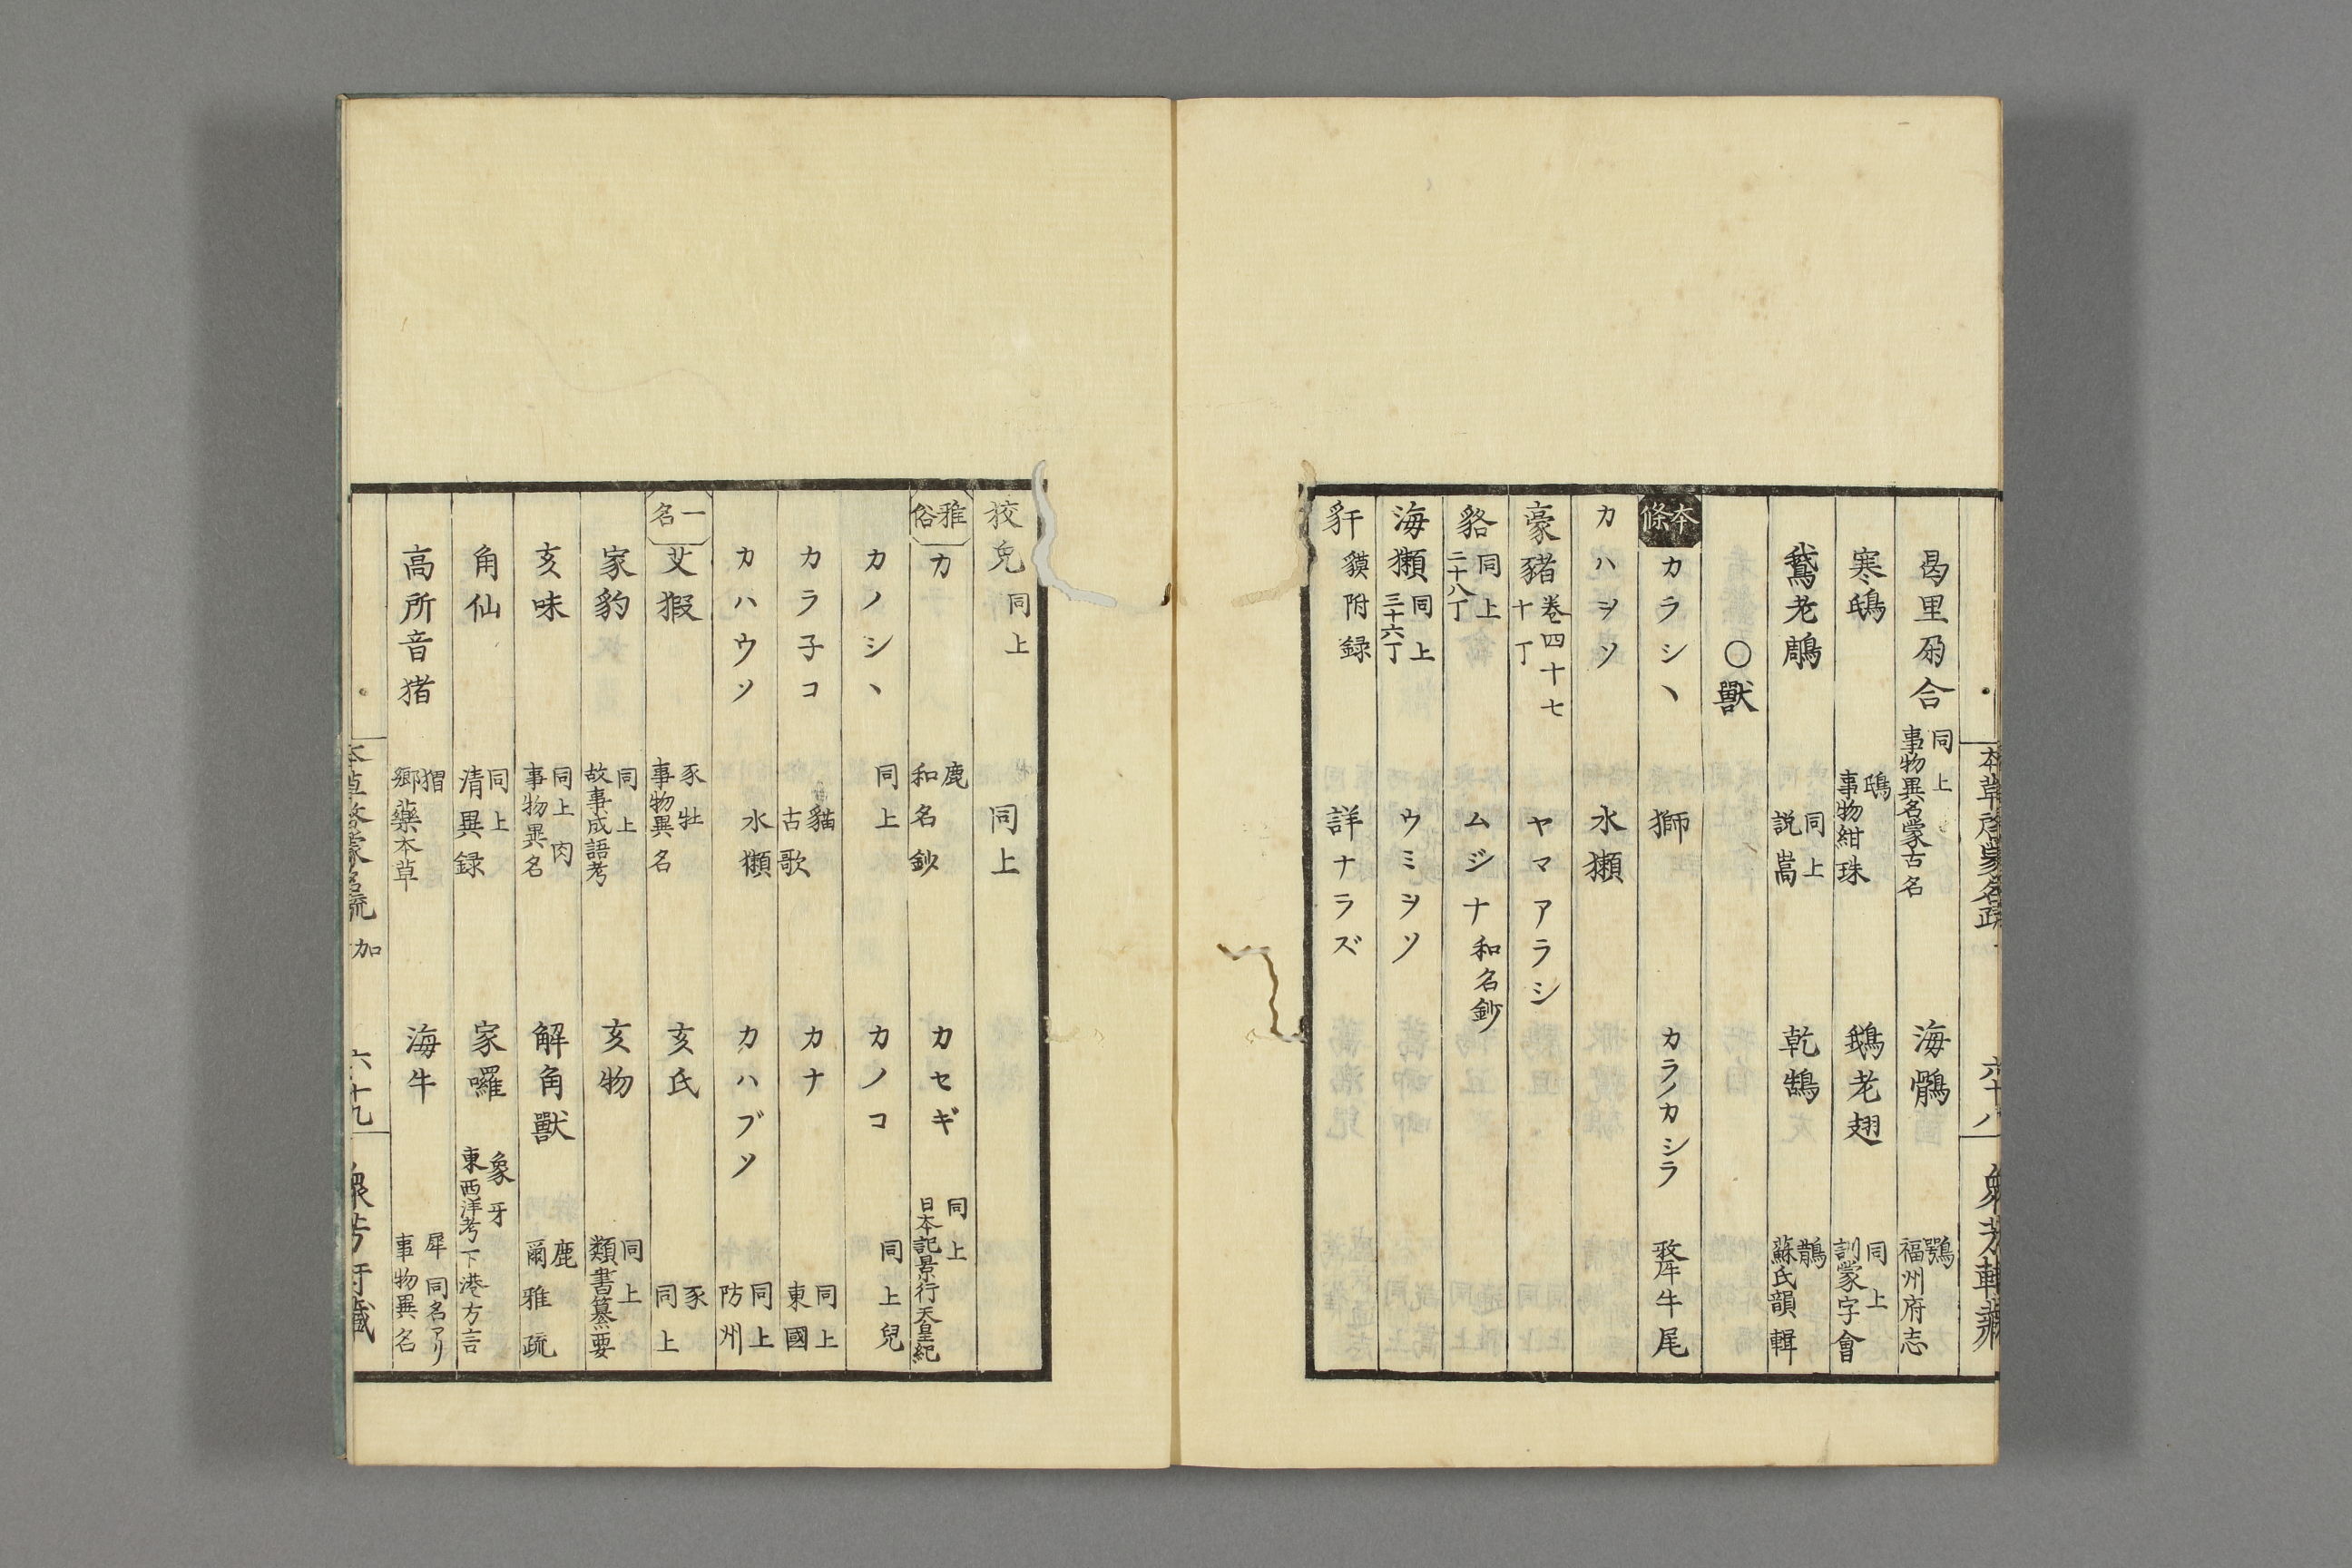 本草啓蒙名疏 六十八 衆芳軒藏
曷里烱合 同上 事物異名蒙古名 海鶻 鶚 福州府志
寒鴟 鴟 事物紺珠 鵝老翅 同上 訓蒙字會
鵞老鵰 同上 説嵩 乾鵠 鵲 蘇氏韻輯
〇獸
本條 カラシヽ 獅 カラノカシラ 犛牛尾
カハヲソ 水獺
豪豬 卷四十七 十丁 ヤマアラシ
貉 同上 二十八丁 ムジナ 和名鈔
海獺 同上 三十六丁 ウミヲソ
豻 貘附録 詳ナラズ
狡兔 同上 同上
雅俗 カ 鹿 和名鈔 カセギ 同上 日本記景行天皇紀
カノシヽ 同上 カノコ 同上兒
カラ子コ 貓 古歌 カナ 同上 東國
カハウソ 水獺 カハブソ 同上 防州
一名 艾豭 豕牡 事物異名 亥氏 豕 同上
家豹 同上 故事成語考 亥物 同上 類書纂要
亥味 同上肉 事物異名 解角獸 鹿 爾雅疏
角仙 同上 清異録 家囉 象牙 東西洋考下港方言
高所音猪 猬 郷藥本草 海牛 犀 同名アリ 事物異名
本草啓蒙名疏 加 六十九 衆芳軒藏